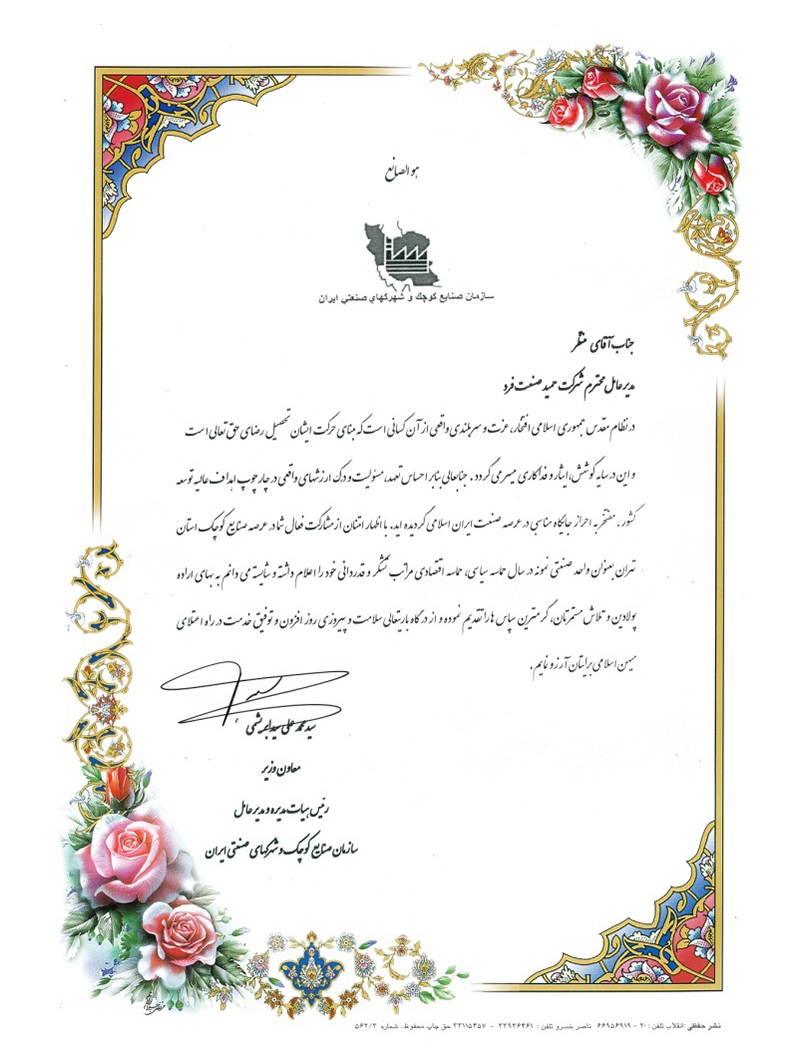 هوالصانع
سازمان صنايع كوچك و شهركهاي صنعتي ايران
جناب آقای منظر
مدیرعامل محترم شرکت حمید صنعت فرد
در نظام مقدس جمهوری اسلامی افتخار، عزت و سربلندی واقعی از آن کسانی است که مبنای حرکت ایشان تحصیل رضای حق تعالی است
و این در سایه کوشش، ایثار و فداکاری میسر می گردد. جنابعالی بنابر احساس تعهد، مسئولیت و درک ارزشهای واقعی در چارچوب اهداف عالیه توسعه
کشور، مفتخر به احراز جایگاه مناسبی در عرصه صنعت ایران اسلامی گردیده اید. با اظهار امتنان از مشارکت فعال شما در عرصه صنایع کوچک استان
تهران بعنوان واحد صنعتی نمونه در سال حماسه سیاسی، حماسه اقتصادی مراتب تشکر و قدردانی خود را اعلام داشته و شایسته می دانم به بهای اراده
پولادین و تلاش مستمرتان، گرمترین سپاس ها را تقدیم نموده و از درگاه باریتعالی سلامت و پیروزی روز افزون و توفیق خدمت در راه اعتلای
میهن اسلامی برایتان آرزو نمایم.
سید محمد علی سید ابریشمی
معاون وزیر
رئیس هیات مدیره و مدیرعامل
سازمان صنایع کوچک و شهرکهای صنعتی ایران
نشر حفظی :انقلاب تلفن : ۲۰ - ۶۶۹۵۶۹۱۹ ناصر خسرو تلفن : ۳۳۹۳۶۴۶۱ - ۳۳۱۱۵۴۵۷ حق چاپ محفوظ . شماره ۵۶۲/۳